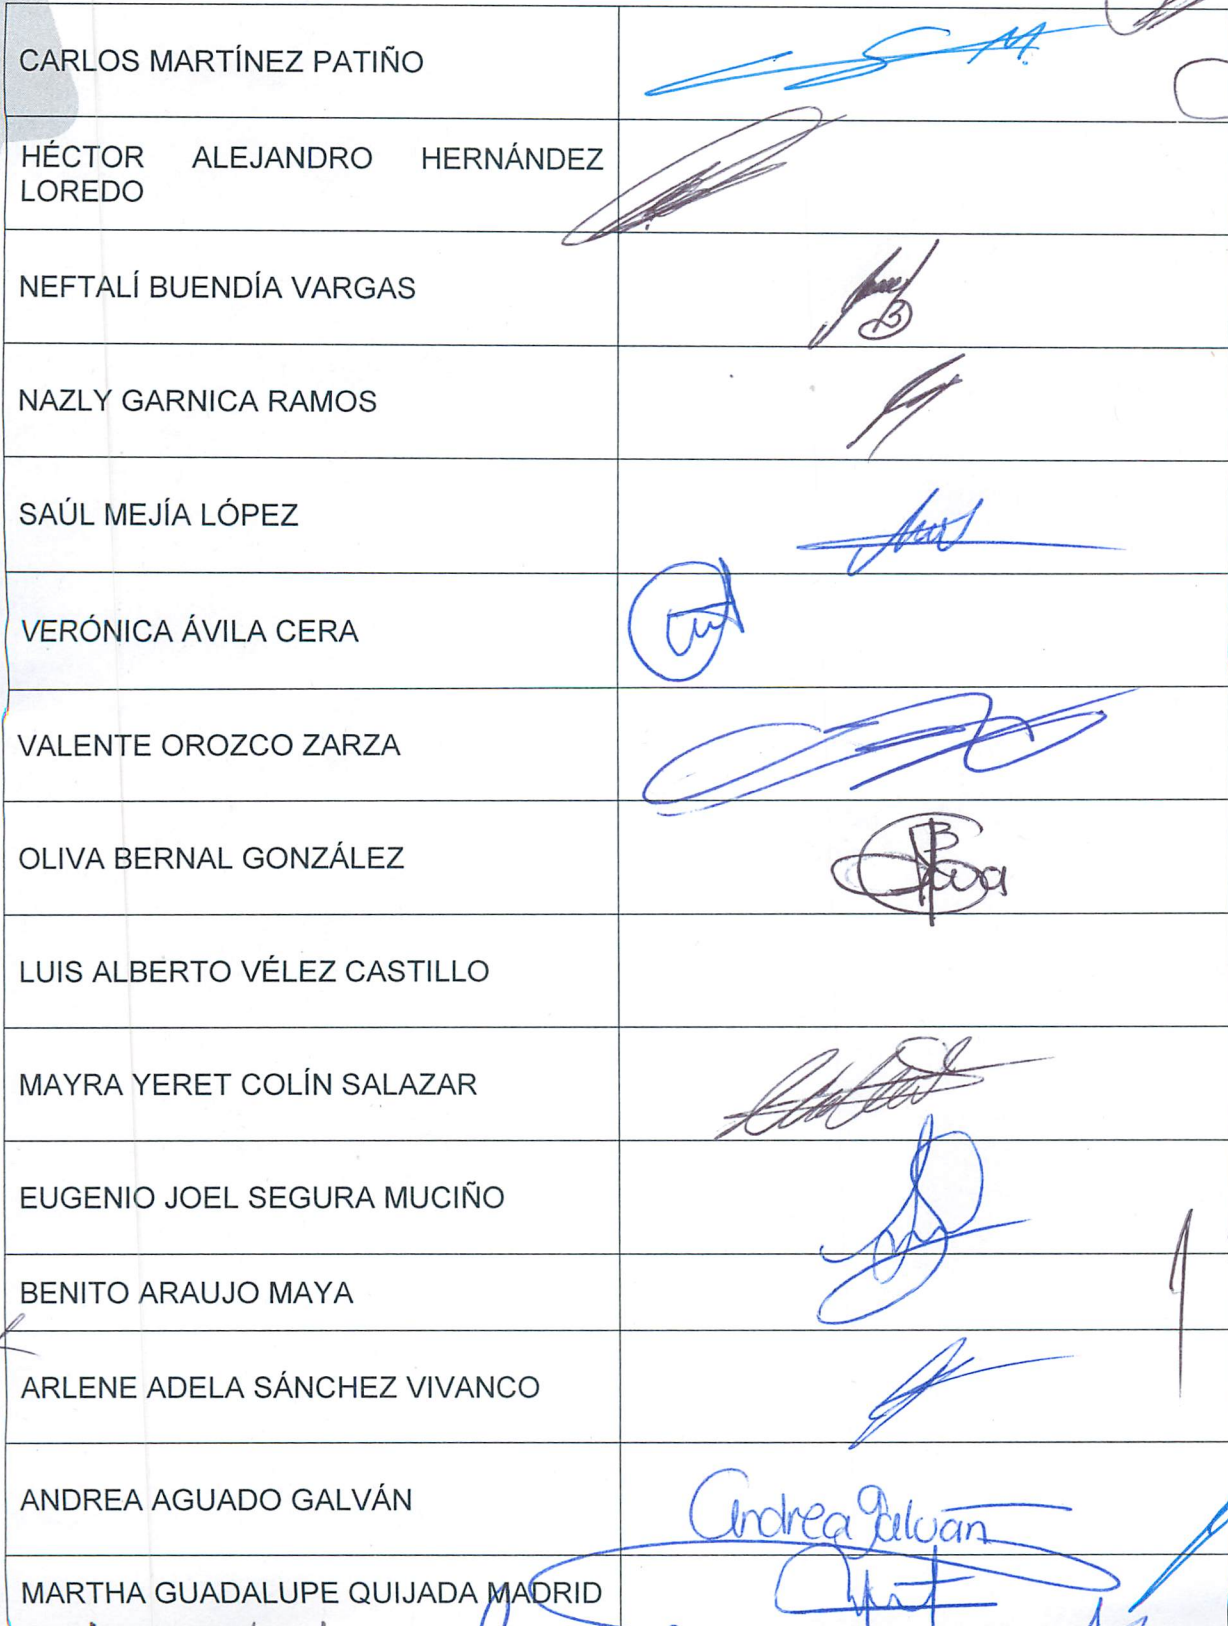 CARLOS MARTÍNEZ PATIÑO
HÉCTOR ALEJANDRO HERNÁNDEZ
LOREDO
NEFTALÍ BUENDÍA VARGAS
NAZLY GARNICA RAMOS
SAÚL MEJÍA LÓPEZ
VERÓNICA ÁVILA CERA
VALENTE OROZCO ZARZA
OLIVA BERNAL GONZÁLEZ
LUIS ALBERTO VÉLEZ CASTILLO
MAYRA YERET COLÍN SALAZAR
EUGENIO JOEL SEGURA MUCIÑO
BENITO ARAUJO MAYA
ARLENE ADELA SÁNCHEZ VIVANCO
ANDREA AGUADO GALVÁN Andrea Galván
MARTHA GUADALUPE QUIJADA MADRID